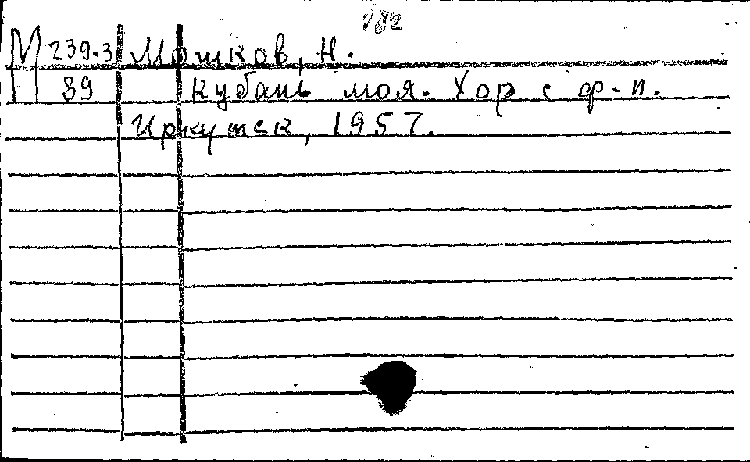 182
М 239-3 Мошков, Н.
89 Кубань моя. Хор с ф-п.
Иркутск, 1957.